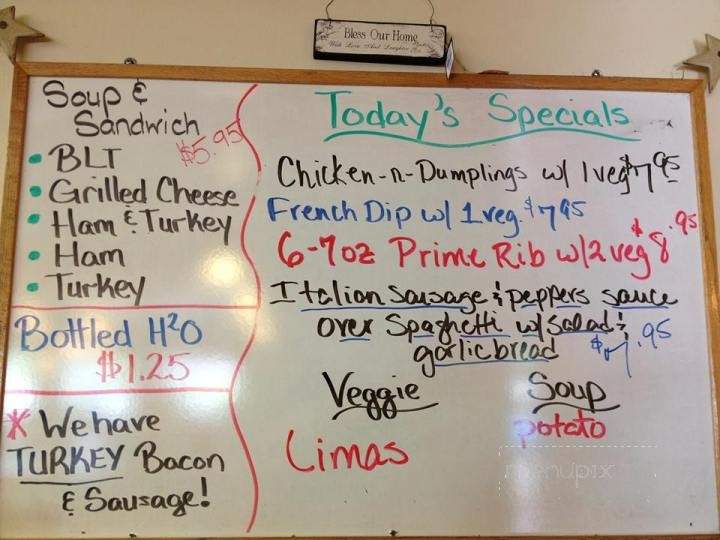 Bless Our Home
Soup &
Sandwich
$5.95
• BLT
• Grilled Cheese
• Ham & Turkey
• Ham
• Turkey
Bottled H²O
$1.25
* We have
TURKEY Bacon
& Sausage!
Today's Specials
Chicken-n-Dumplings w/ 1 veg $7.95
French Dip w/ 1 veg. $7.95
6-7oz Prime Rib w/2 veg $8.95
Italian sausage & peppers sauce
over Spaghetti w/ Salad &
garlic bread $7.95
Veggie
Limas
Soup
potato
menupix